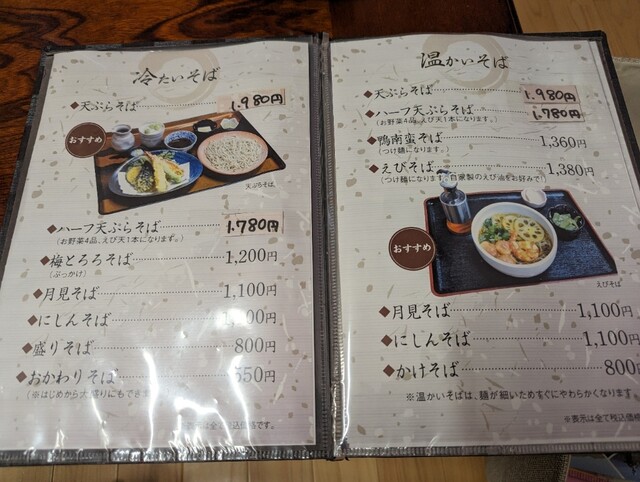 冷たいそば
◆天ぷらそば 1.980円
おすすめ
天ぷらそば
◆ハーフ天ぷらそば 1.780円
(お野菜4品、えび天1本になります。)
◆梅とろろそば 1,200円
(ぶっかけ)
◆月見そば 1,100円
◆にしんそば
◆盛りそば 800円
◆おかわりそば 550円
(※はじめから大盛りにもでき
※表示は全て税込価格です。
温かいそば
◆天ぷらそば 1.980円
◆ハーフ天ぷらそば 1.780円
(お野菜4品、えび天1本になります。)
◆鴨南蛮そば 1,360円
(つけ麺になります。)
◆えびそば 1,380円
(つけ麺になります。自家製のえび油をお好みで)
おすすめ
えびそば
◆月見そば 1,100円
◆にしんそば 1,100円
◆かけそば 800円
※温かいそばは、麺が細いためすぐにやわらかくなります。
※表示は全て税込価格